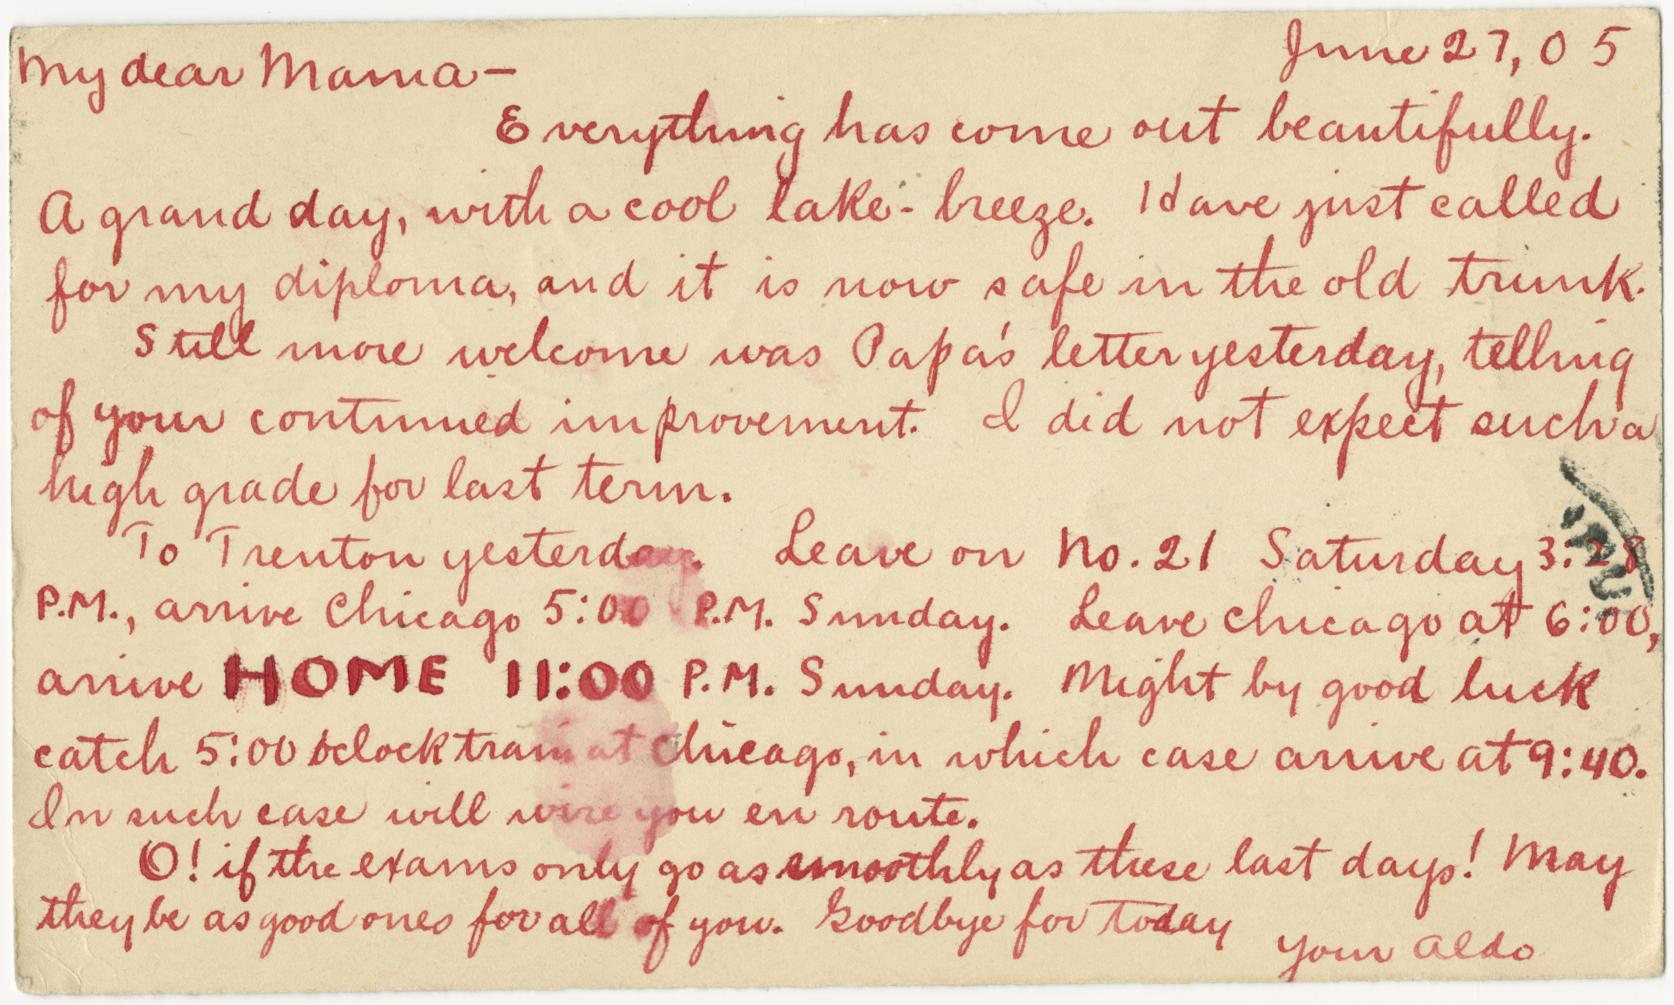 June 27, 05
My dear Mama—
Everything has come out beautifully.
A grand day, with a cool lake-breeze. Have just called
for my diploma, and it is now safe in the old trunk.
Still more welcome was Papa's letter yesterday, telling
of your continued improvement. I did not expect such a
high grade for last term.
To Trenton yesterday. Leave on No. 21 Saturday 3:28
P.M., arrive Chicago 5:00 P.M. Sunday. Leave Chicago at 6:00,
arrive HOME 11:00 P.M. Sunday. Might by good luck
catch 5:00 oclock train at Chicago, in which case arrive at 9:40.
In such case will wire you en route.
O! if the exams only go as smoothly as these last days! May
they be as good ones for all of you. Goodbye for today
Your Aldo